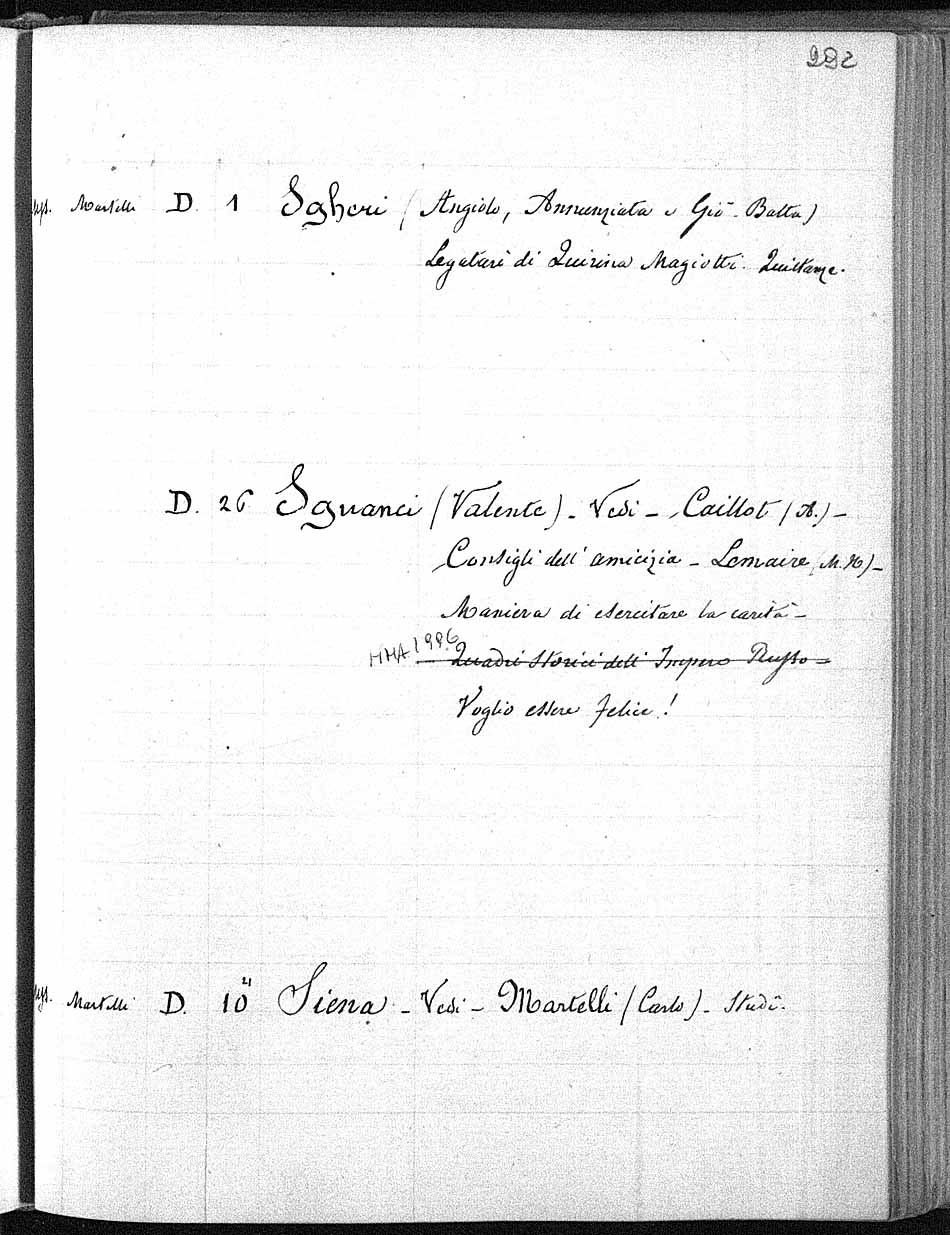 292
Mss. Martelli D. 1 Sgheri (Angiolo, Annunziata e Gio. Batta)
Legatari di Quirina Magiotti. Quittanze.
D. 26 Sguanci (Valente) - Vedi - Caillot (A.) -
Consigli dell'amicizia - Lemaire (M. H) -
Maniera di esercitare la carità -
MHA 1996 - Quadri Storici dell'Impero Russo -
Voglio essere felice!
Mss. Martelli D. 10 21 Siena - Vedi - Martelli (Carlo) - Studî.